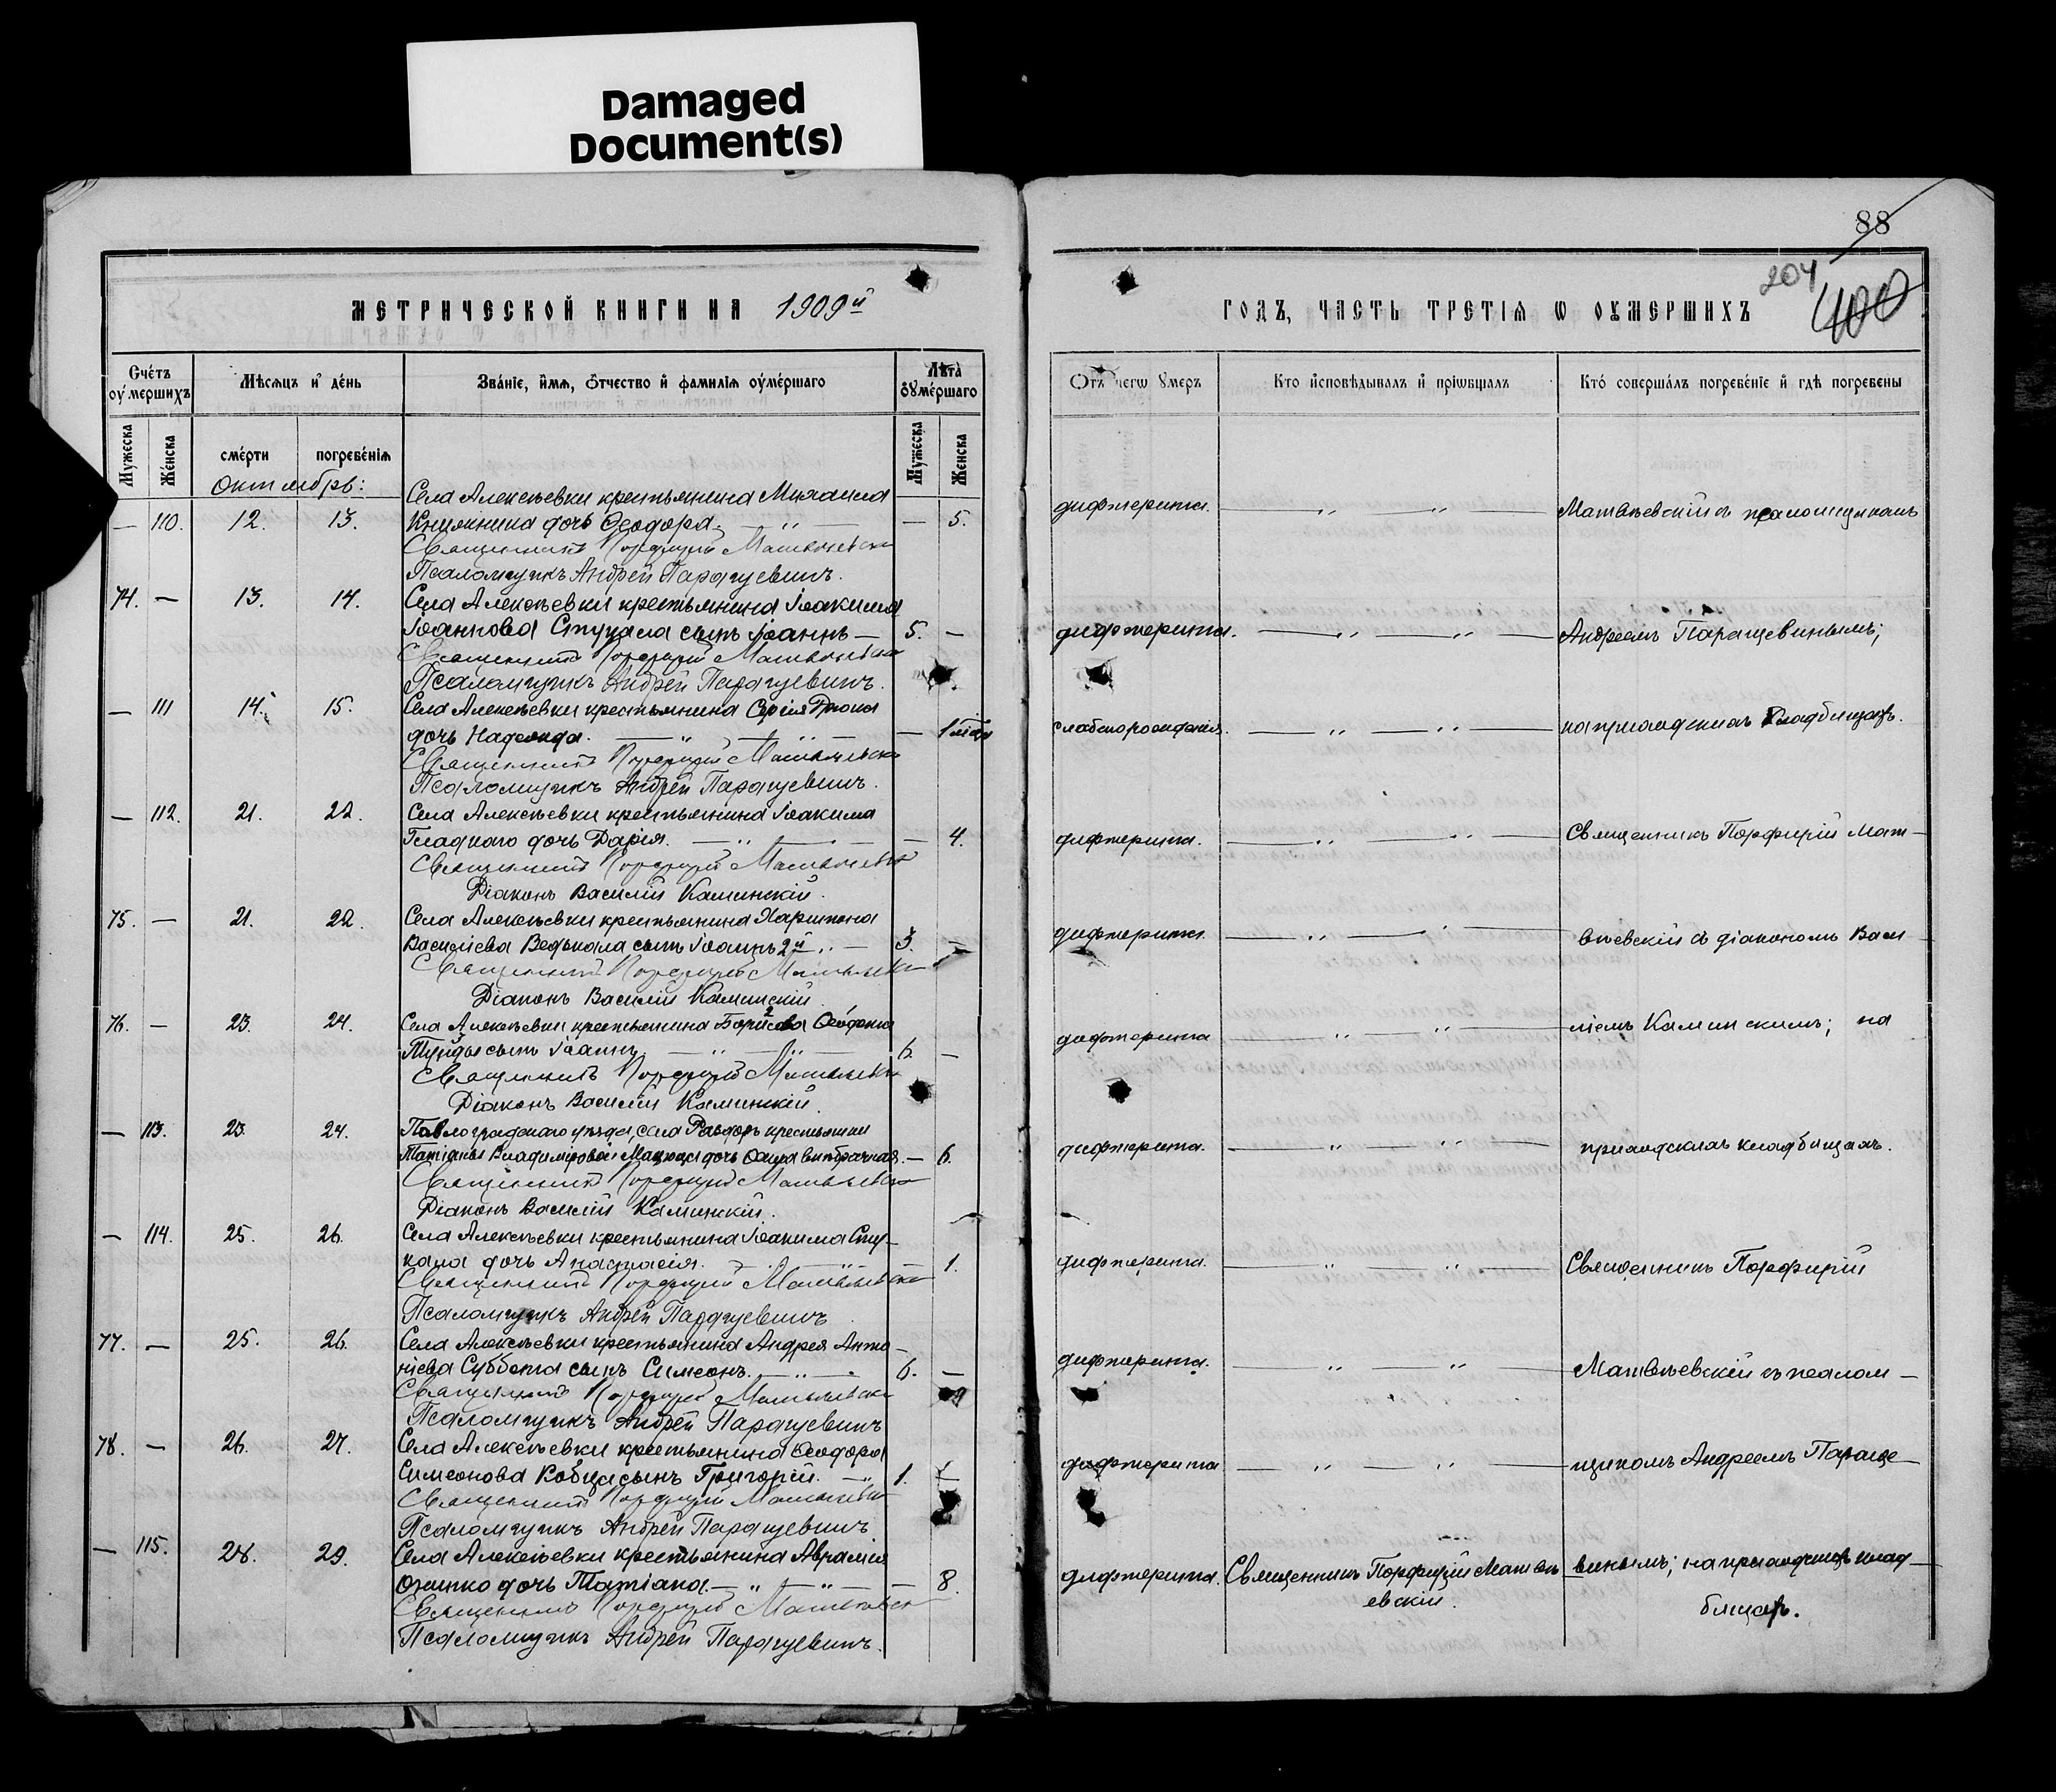 Damaged
Document(s)
88
204
400
МЕТРИЧЕСКОЙ КНИГИ НА 1909й
ГОДЪ, ЧАСТЬ ТРЕТІѦ Ѡ ОУМЕРШИХЪ
Счётъ оумершихъ
Мѣсяцъ и день
Званіе, имя, отчество и фамилія оумершаго
Лѣта оумершаго
Отъ чегѡ умеръ
Кто исповѣдывалъ и пріѡбщалъ
Кто совершалъ погребеніе и гдѣ погребены
Мужеска
Женска
смерти
погребенія
Мужеска
Женска
Октябрь:
Села Алексѣевки крестьянина Михаила
— 110. 12. 13. Княжника дочь Ѳеодора. — „ — — 5. дифтерита. — „ — „ — Матвѣевскій съ псаломщикомъ
Священникъ Порфирій Матвѣевскій
Псаломщикъ Андрей Паращевинъ.
74. — 13. 14. Села Алексѣевки крестьянина Іоакима
Іоаннова Стукала сынъ Іоаннъ — 5. — дифтерита. — „ — „ — Андреемъ Паращевинымъ;
Священникъ Порфирій Матвѣевскій
Псаломщикъ Андрей Паращевинъ.
— 111 14. 15. Села Алексѣевки крестьянина Сергія
дочь Надежда. — „ — „ — — 1 слаборожденія. — „ — „ — на приходскихъ кладбищахъ.
Священникъ Порфирій Матвѣевскій
Псаломщикъ Андрей Паращевинъ.
— 112. 21. 22. Села Алексѣевки крестьянина Іоакима
Гладкаго дочь Дарія. — „ — — 4. дифтерита. — „ — „ — Священникъ Порфирій Мат—
Священникъ Порфирій Матвѣевскій
Діаконъ Василій Каминскій.
75. — 21. 22. Села Алексѣевки крестьянина Харитона
Василіева Ведькала сынъ Іоаннъ 2й „ — 3. — дифтерита. — „ — „ — вѣевскій съ діакономъ Васи
Священникъ Порфирій Матвѣевскій
Діаконъ Василій Каминскій.
76. — 23. 24. Села Алексѣевки крестьянина Борисова
сынъ Іоаннъ — „ — „ — 6. — дифтерита — „ — „ — ліемъ Каминскимъ; на
Священникъ Порфирій Матвѣевскій
Діаконъ Василій Каминскій.
— 113. 23. 24. Павлоградскаго уѣзда, села крестьянки
Татіаны Владиміровой дочь внѣбрачная. — 6. дифтерита. — „ — „ — приходскихъ кладбищахъ.
Священникъ Порфирій Матвѣевскій
Діаконъ Василій Каминскій.
— 114. 25. 26. Села Алексѣевки крестьянина Іоакима Сту—
кала дочь Анастасія. — „ — — 1. дифтерита. — „ — „ — Священникъ Порфирій
Священникъ Порфирій Матвѣевскій
Псаломщикъ Андрей Паращевинъ
77. — 25. 26. Села Алексѣевки крестьянина Андрея Анто—
ніева Суббота сынъ Симеонъ. — „ — 6. — дифтерита. — „ — „ — Матвѣевскій съ псалом—
Священникъ Порфирій Матвѣевскій
Псаломщикъ Андрей Паращевинъ
78. — 26. 27. Села Алексѣевки крестьянина Ѳеодора
Симеонова Кобца сынъ Григорій. — „ 1. — дифтерита — „ — „ — щикомъ Андреемъ Параще—
Священникъ Порфирій Матвѣевскій
Псаломщикъ Андрей Паращевинъ
— 115. 28. 29. Села Алексѣевки крестьянина Аврамія
дочь Татіана. — „ — „ — — 8. дифтерита. Священникъ Порфирій Матвѣ винымъ; на приходскихъ клад—
евскій. бищахъ.
Священникъ Порфирій Матвѣевскій
Псаломщикъ Андрей Паращевинъ.